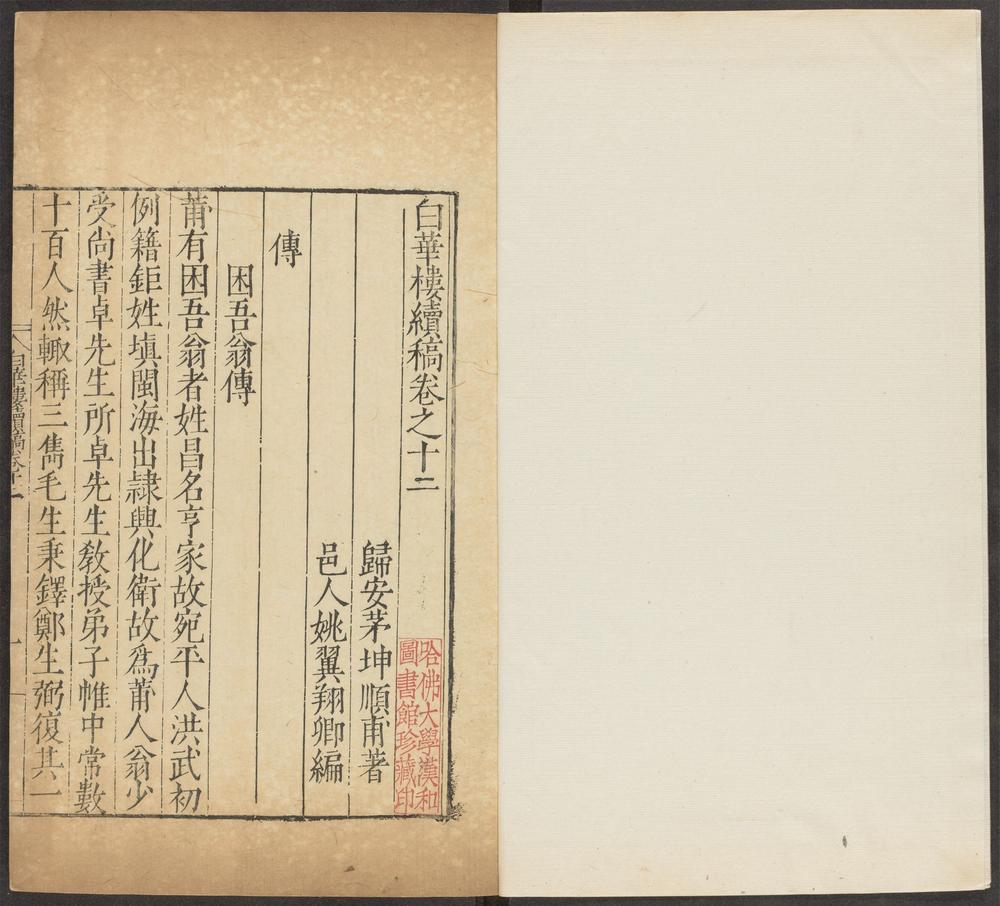 白華樓續稿卷之十二
哈佛大學漢和
圖書館珍藏印
歸安茅坤順甫著
邑人姚翼翔卿編
傳
困吾翁傳
莆有困吾翁者姓昌名亨家故宛平人洪武初
例籍鉅姓填閩海出隷興化衛故爲莆人翁少
受尚書卓先生所卓先生敎授弟子帷中常數
十百人然輙稱三雋毛生秉鐸鄭生弼復其一
白華樓續稿卷十二
一